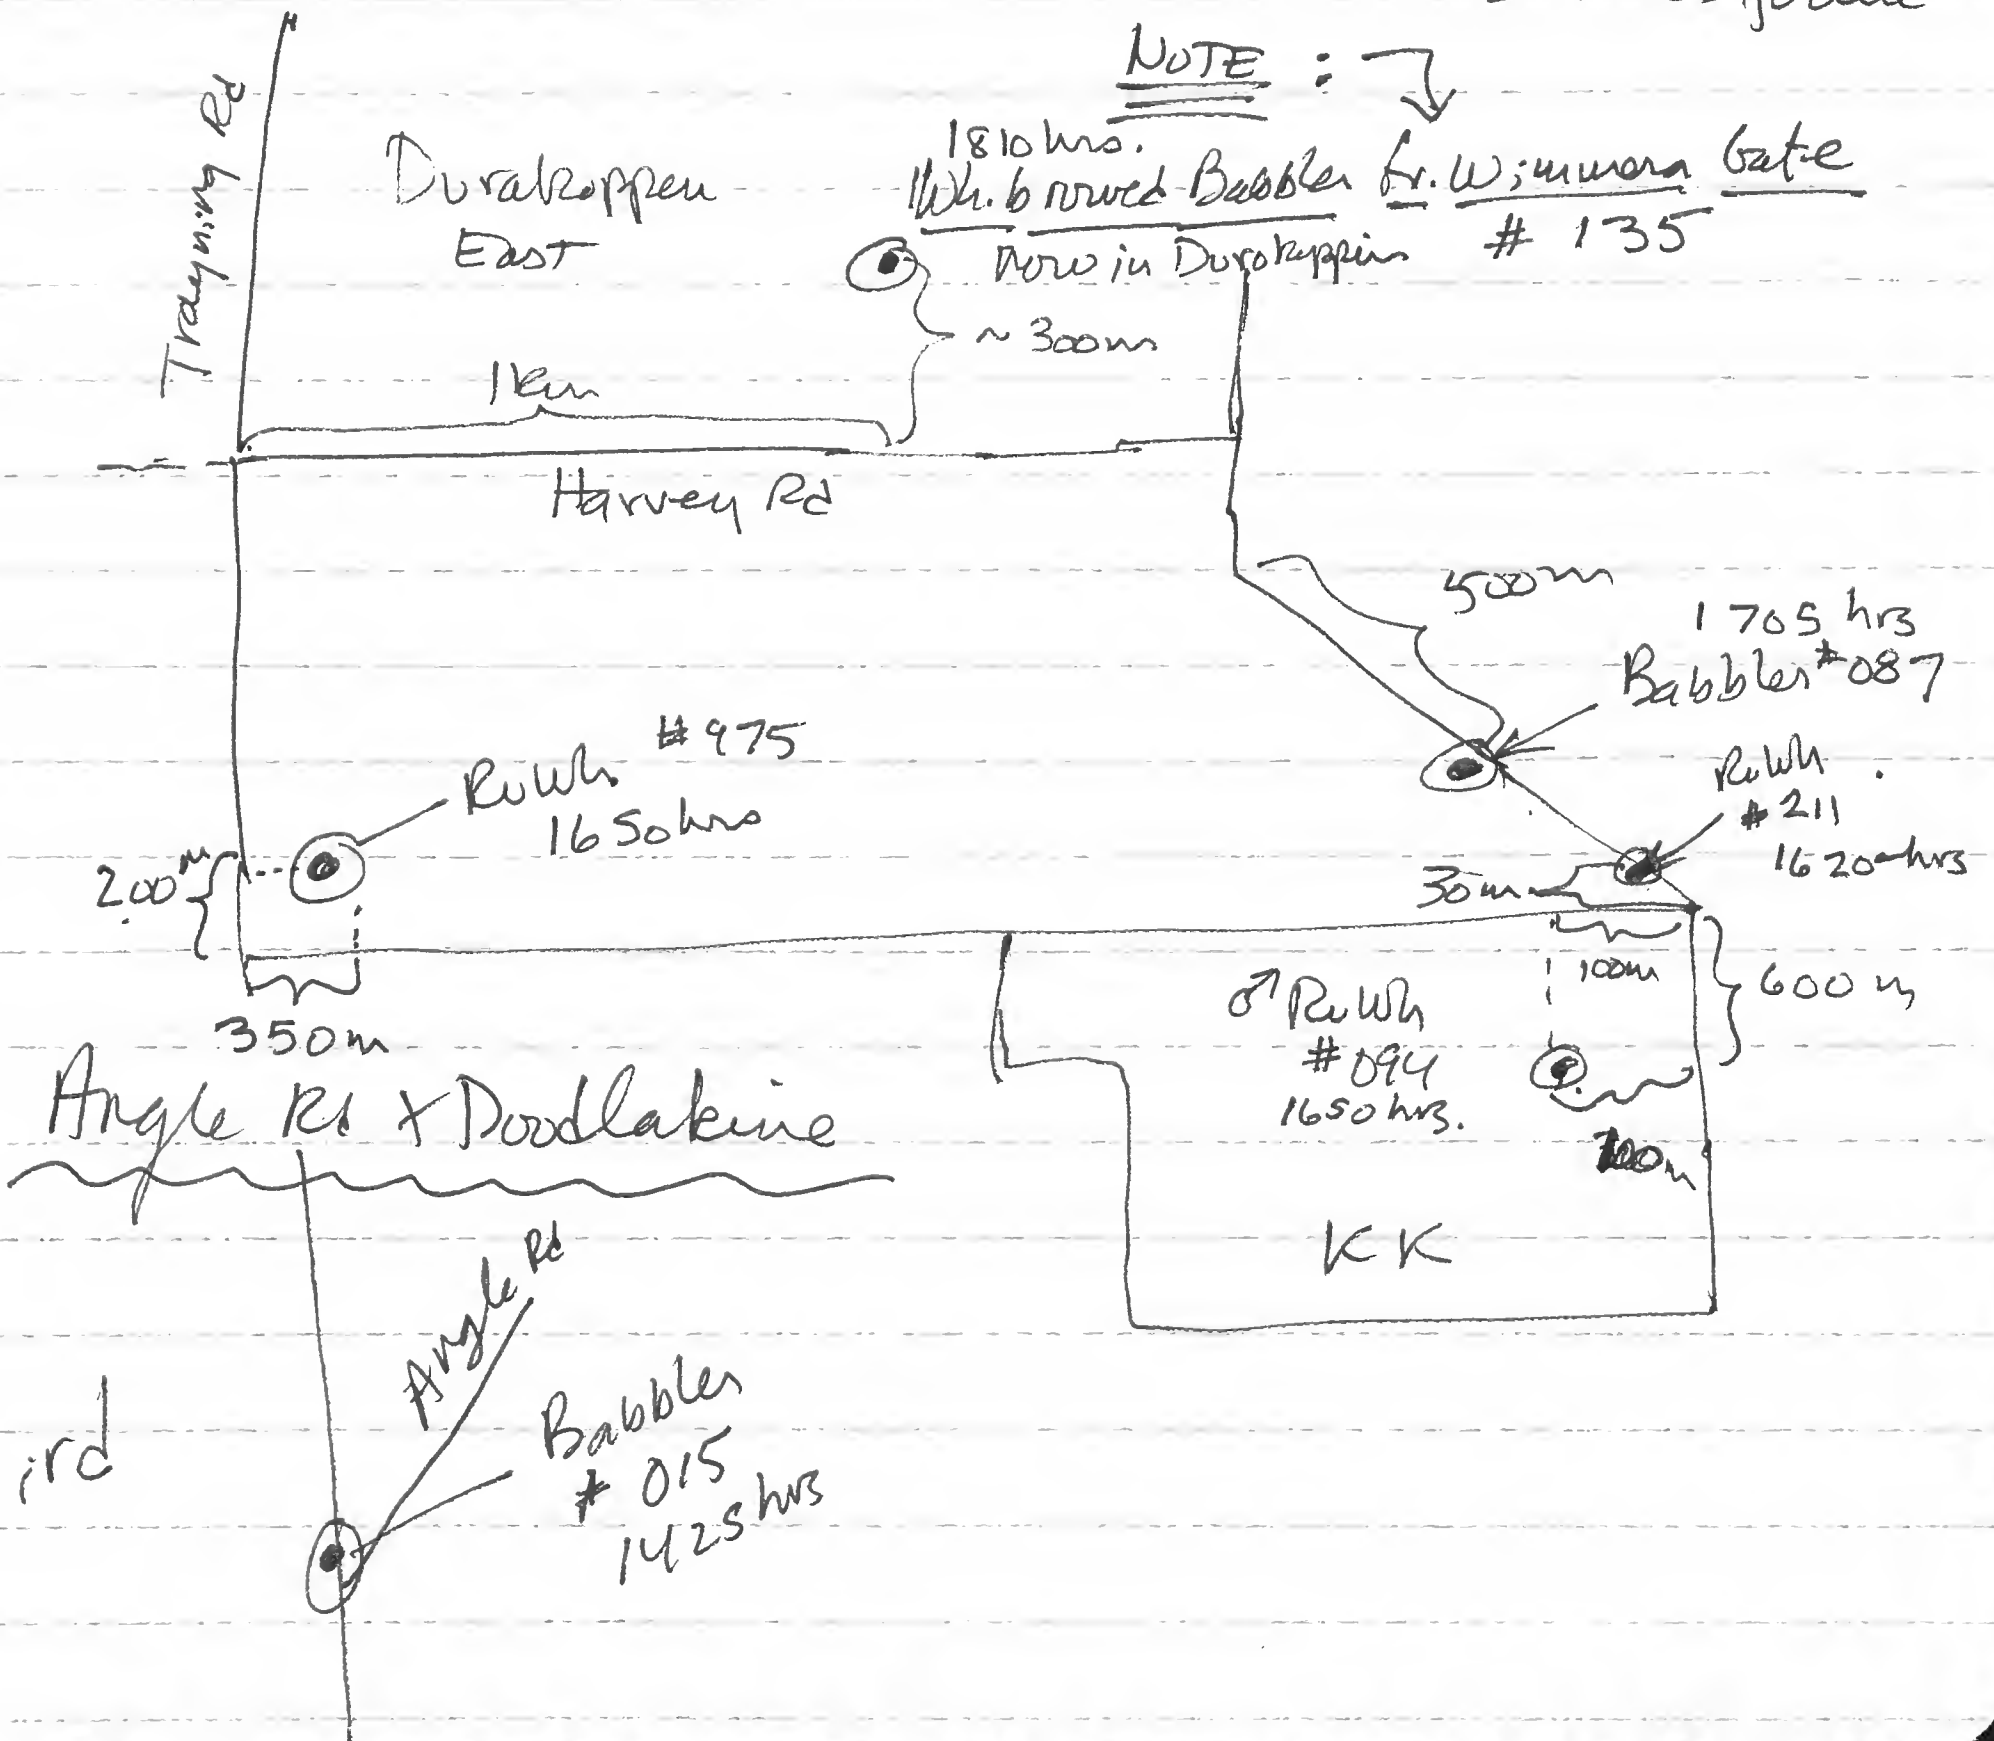 NOTE :
Trayning Rd
Durakoppen
East
1810 hrs.
1 Wh. browed Babbler fr. Wimmera Gate
# 135
now in Durokoppin
~ 300m
1km
Harvey Rd
500m
1705 hrs
Babbler #087
RuWh #975
1650hrs
RuWh
#211
1620 hrs
200m
30m
350m
100m
600m
♂ RuWh
#094
1650 hrs.
100m
KK
Angle Rd + Doodlakine
Angle Rd
Babbler
# 015
1425 hrs
ird